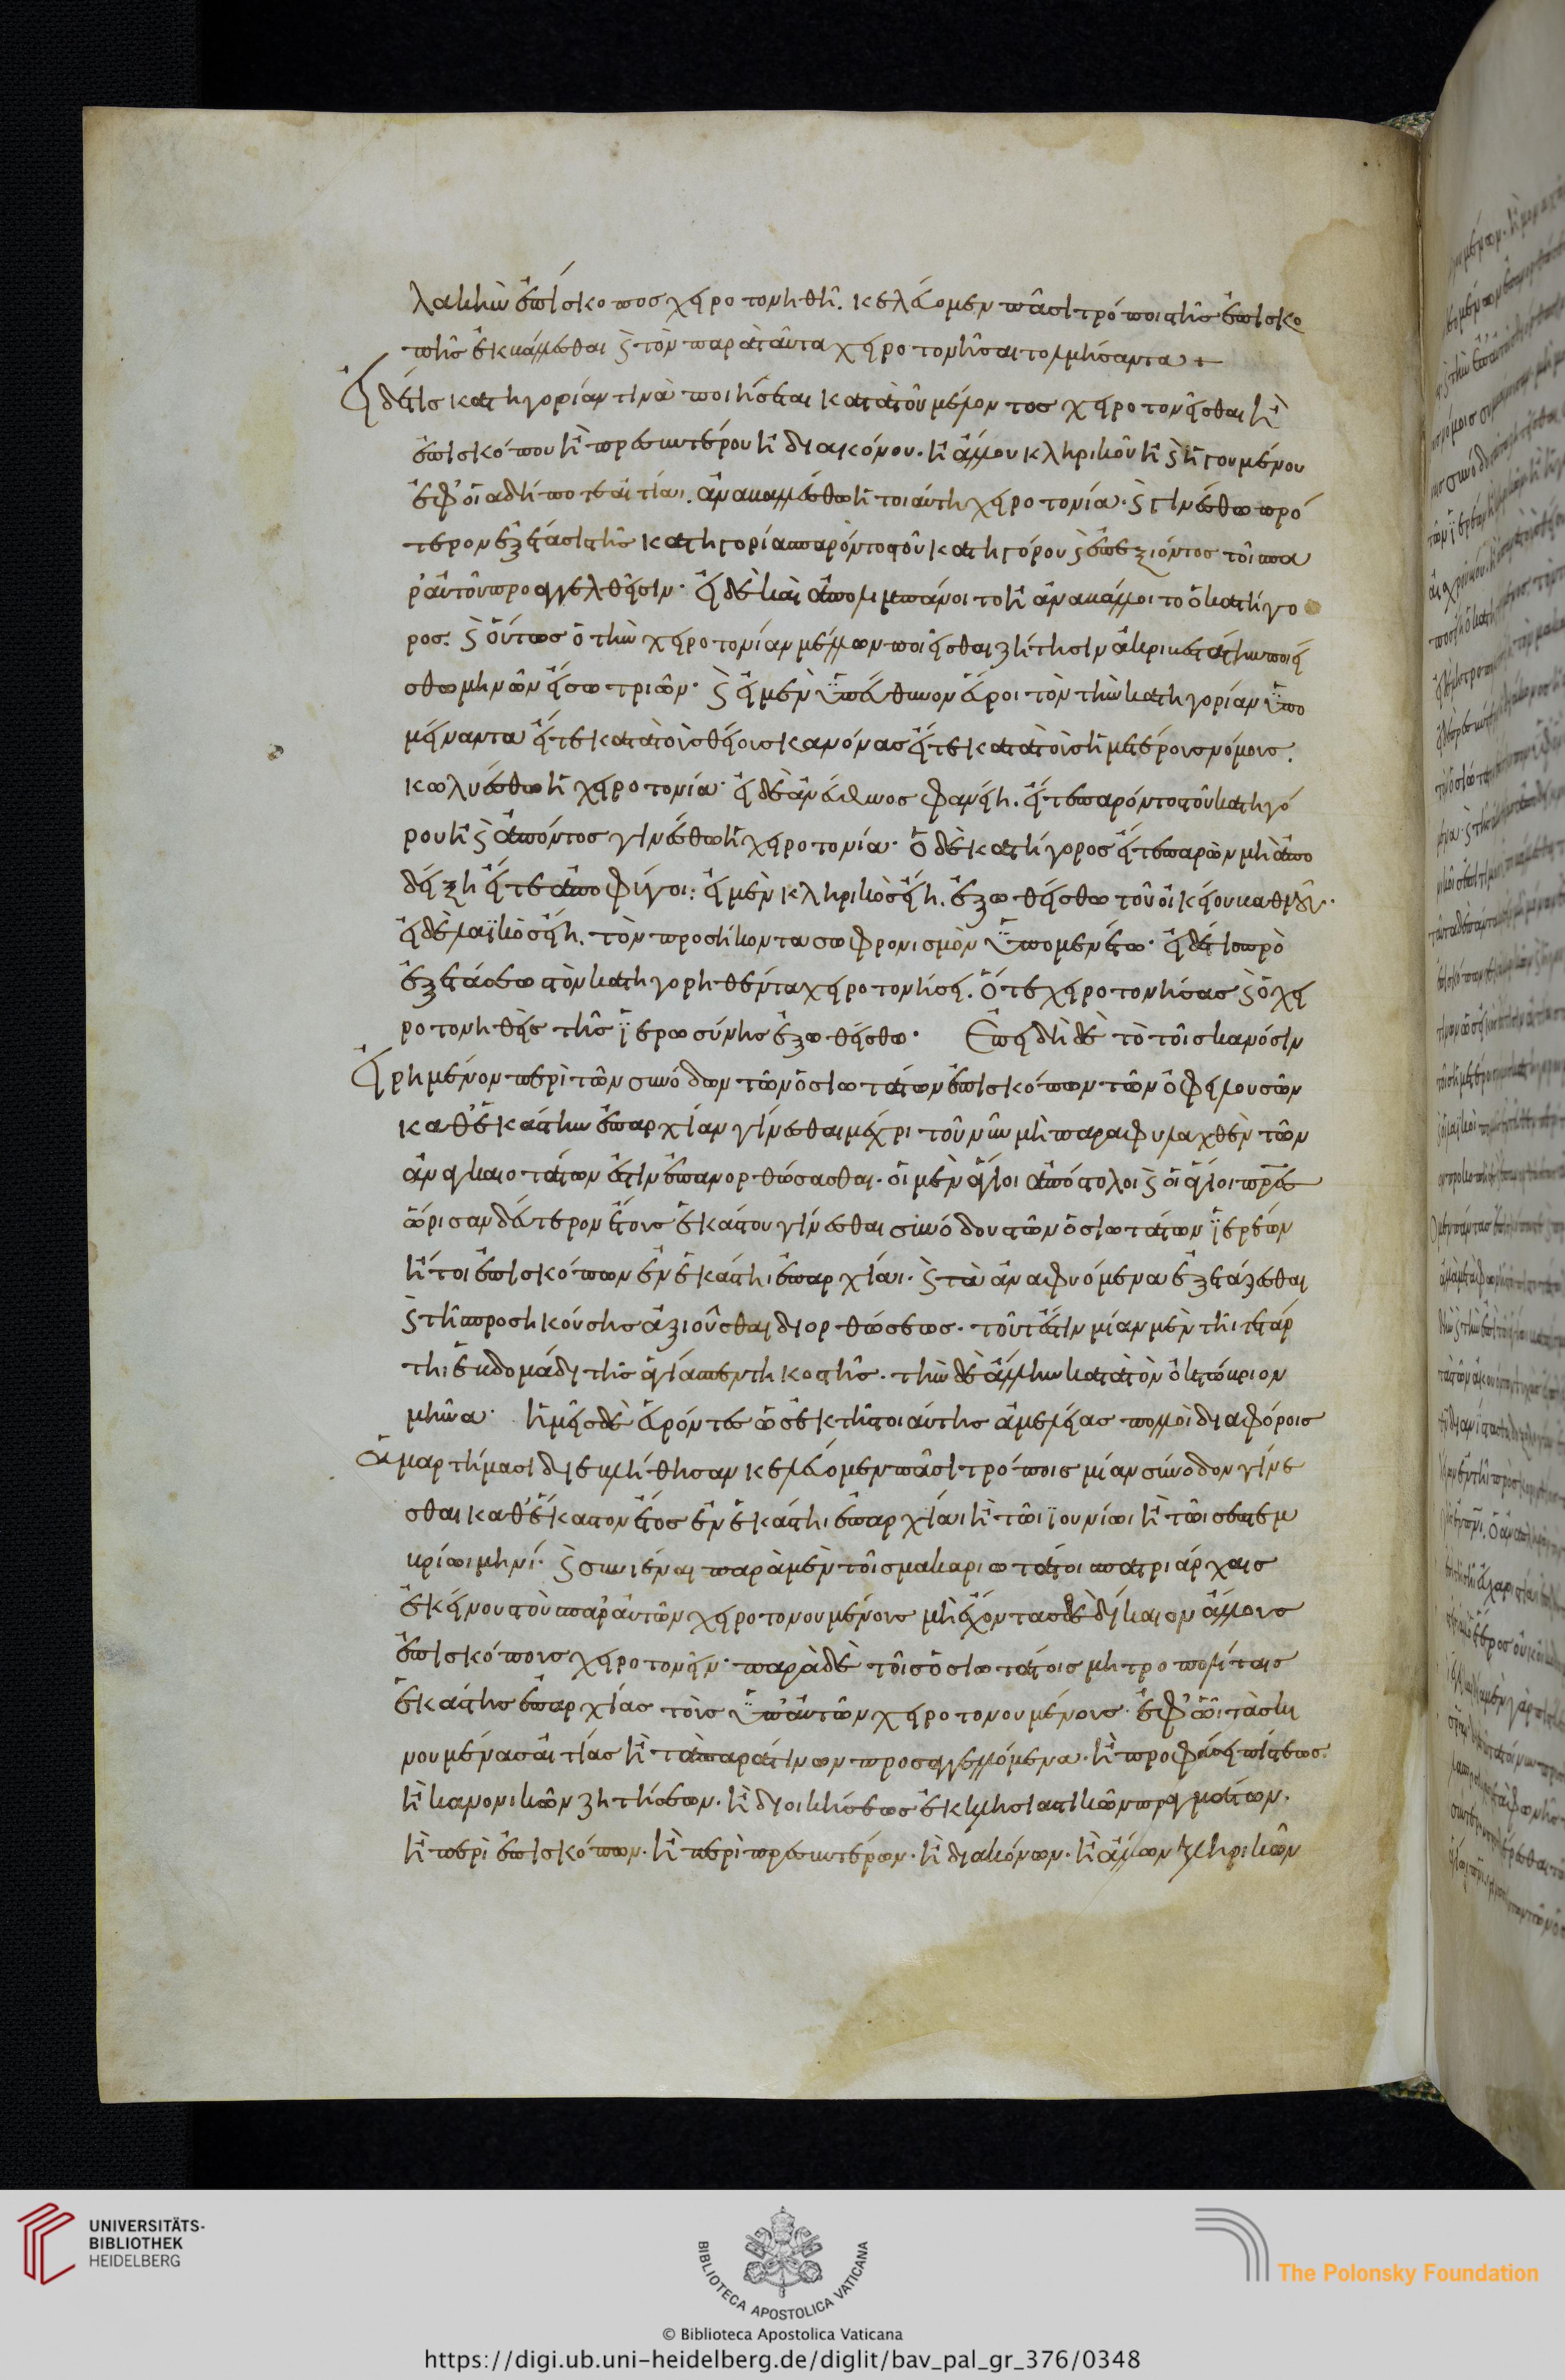 λαβὴν ἐπίσκοπος χειροτονηθῆ. κελεύομεν πᾶσι τρόποις τῆς ἐπισκο
πῆς ἐκβάλλεσθαι καὶ τὸν παρὰ ταῦτα χειροτονῆσαι τολμήσαντα
Εἰ δέ τις κατηγορίαν τινὰ ποιήσεται κατὰ τοῦ μέλλοντος χειροτονεῖσθαι ἢ
ἐπισκόπου ἢ πρεσβυτέρου ἢ διακόνου. ἢ ἄλλου κληρικοῦ ἢ καὶ ἡγουμένου
ἐφ' οἵα δήποτε αἰτίαι. ἀναβαλλέσθω ἡ τοιαύτη χειροτονία. καὶ γινέσθω πρό
τερον ἐξέτασις τῆς κατηγορίας παρόντος τοῦ κατηγόρου καὶ ἐπεξιόντος τοῖς πα
ρ' αὐτοῦ προαγγελθεῖσιν. εἰ δὲ καὶ ἀπολιμπάνοιτο ἢ ἀναβάλλοιτο ὁ κατήγο
ρος. καὶ οὕτως ὁ τὴν χειροτονίαν μέλλων ποιεῖσθαι ζήτησιν ἀκριβεστάτην ποιεί
σθω μηνῶν εἴσω τριῶν. καὶ εἰ μὲν ὑπεύθυνον εὕροι τὸν τὴν κατηγορίαν ὑπο
μείναντα εἴτε κατὰ τοὺς θείους κανόνας εἴτε κατὰ τοὺς ἡμετέρους νόμους.
κωλυέσθω ἡ χειροτονία. εἰ δὲ ἀνεύθυνος φανείη. εἴτε παρόντος τοῦ κατηγό
ρου ἢ καὶ ἀπόντος γινέσθω ἡ χειροτονία. ὁ δὲ κατήγορος εἴτε παρὼν μὴ ἀπο
δείξη εἴτε ἀποφύγοι: εἰ μὲν κληρικὸς εἴη. ἔξω θείσθω τοῦ οἰκείου βαθμοῦ.
εἰ δὲ λαϊκὸς εἴη. τὸν προσήκοντα σωφρονισμὸν ὑπομενέτω. εἰ δέ τις πρὸ
ἐξετάσεως τὸν κατηγορηθέντα χειροτονήσει. ὅ τε χειροτονήσας καὶ ὁ χει
ροτονηθεὶς τῆς ἱερωσύνης ἔξω θείσθω. Ἐπειδὴ δὲ τὸ τοῖς κανόσιν
εἰρημένον περὶ τῶν συνόδων τῶν ὁσιωτάτων ἐπισκόπων τῶν ὀφειλουσῶν
καθ' ἑκάστην ἐπαρχίαν γίνεσθαι μέχρι τοῦ νῦν μὴ παραφυλαχθὲν τῶν
ἀναγκαιοτάτων ἐστὶν ἐπανορθώσασθαι. οἱ μὲν ἅγιοι ἀπόστολοι καὶ οἱ ἅγιοι πρες
ὥρισαν δεύτερον ἔτους ἑκάστου γίνεσθαι σύνοδον τῶν ὁσιωτάτων ἱερέων
ἤτοι ἐπισκόπων ἐν ἑκάστηι ἐπαρχίαι. καὶ τὰ ἀναφυόμενα ἐξετάζεσθαι
καὶ τῆς προσηκούσης ἀξιοῦσθαι διορθώσεως. τοῦτ' ἔστιν μίαν μὲν τῆι τετάρ
τηι ἑβδομάδι τῆς ἁγίας πεντηκοστῆς. τὴν δὲ ἄλλην κατὰ τὸν ὀκτώβριον
μῆνα. ἡμεῖς δὲ εὑρόντες ὡς ἐκ τῆς τοιαύτης ἀμελείας πολλοὶ διαφόροις
ἁμαρτήμασι διεβλήθησαν κελεύομεν πᾶσι τρόποις μίαν σύνοδον γίνε
σθαι καθ' ἕκαστον ἔτος ἐν ἑκάστηι ἐπαρχίαι ἢ τῶι ϊουνίωι ἢ τῶι σεπτεμ
βρίωι μηνί. καὶ συνιέναι παρὰ μὲν τοῖς μακαριωτάτοις πατριάρχαις
ἐκείνους τοὺς παρ' αὐτῶν χειροτονουμένους μὴ ἔχοντας δὲ δίκαιον ἄλλους
ἐπισκόπους χειροτονεῖν. παρὰ δὲ τοῖς ὁσιωτάτοις μητροπολίταις
ἑκάστης ἐπαρχίας τοὺς ὑπ' αὐτῶν χειροτονουμένους. ἐφ' ὧι τὰς κι
νουμένας αἰτίας ἢ τὰ παρά τινων προσαγγελλόμενα. ἢ προφάσει πίστεως.
ἢ κανονικῶν ζητήσεων. ἢ διοικήσεως ἐκκλησιαστικῶν πραγμάτων.
ἢ περὶ ἐπισκόπων. ἢ περὶ πρεσβυτέρων. ἢ διακόνων. ἢ ἄλλων κληρικῶν
UNIVERSITÄTS-
BIBLIOTHEK
HEIDELBERG
BIBLIOTECA APOSTOLICA VATICANA
The Polonsky Foundation
© Biblioteca Apostolica Vaticana
https://digi.ub.uni-heidelberg.de/diglit/bav_pal_gr_376/0348